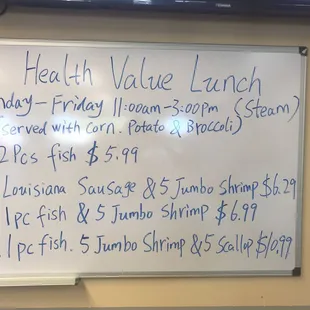 Health Value Lunch
nday - Friday 11:00am-3:00pm (Steam)
served with corn. Potato & Broccoli)
2 Pcs fish $5.99
Louisiana Sausage & 5 Jumbo Shrimp $6.29
1 pc fish & 5 Jumbo Shrimp $6.99
1 pc fish. 5 Jumbo Shrimp & 5 Scallop $10.99